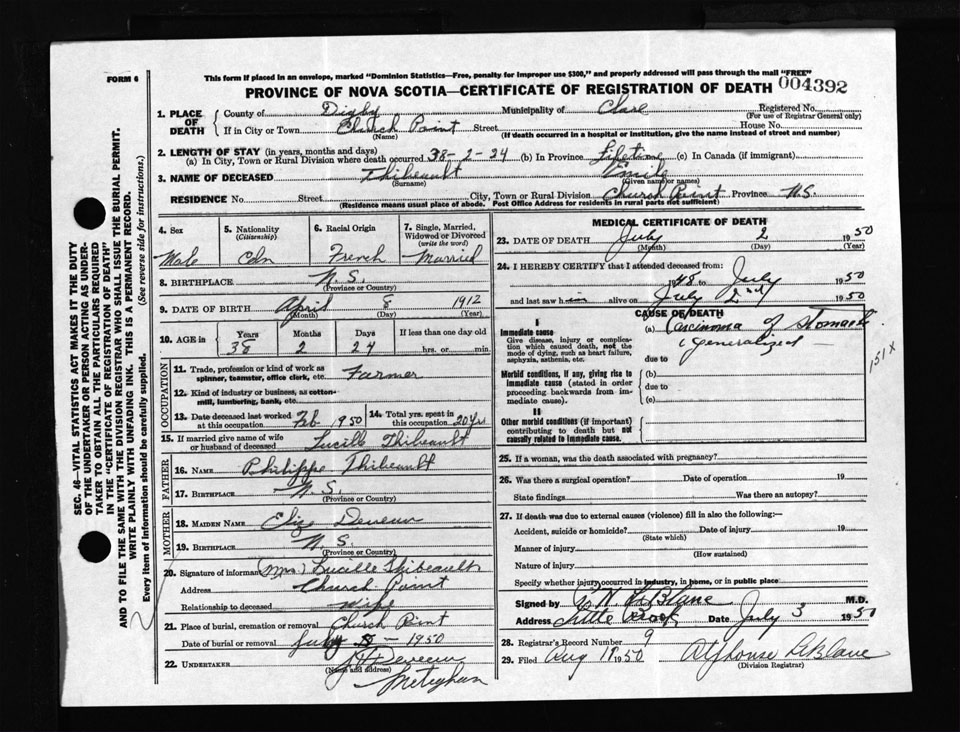 FORM 6
This form if placed in an envelope, marked "Dominion Statistics—Free, penalty for improper use $300," and properly addressed will pass through the mail "FREE"
004392
PROVINCE OF NOVA SCOTIA—CERTIFICATE OF REGISTRATION OF DEATH
1. PLACE OF DEATH County of Digby Municipality of Clare Registered No.
(For use of Registrar General only)
If in City or Town Church Point Street House No.
(Name) (If death occurred in a hospital or institution, give the name instead of street and number)
2. LENGTH OF STAY (in years, months and days)
(a) In City, Town or Rural Division where death occurred 38-2-24 (b) In Province Lifetime (c) In Canada (if immigrant)
3. NAME OF DECEASED Thibeault Emile
(Surname) (Given name or names)
RESIDENCE No. Street City, Town or Rural Division Church Point Province N.S.
(Residence means usual place of abode. Post Office Address for residents in rural parts not sufficient)
4. Sex
Male
5. Nationality
(Citizenship)
Cdn
6. Racial Origin
French
7. Single, Married, Widowed or Divorced
(write the word)
Married
8. BIRTHPLACE N.S.
(Province or Country)
9. DATE OF BIRTH April 8 1912
(Month) (Day) (Year)
10. AGE in Years Months Days If less than one day old
38 2 24 hrs. or min.
OCCUPATION
11. Trade, profession or kind of work as spinner, teamster, office clerk, etc. Farmer
12. Kind of industry or business, as cotton-mill, lumbering, bank, etc.
13. Date deceased last worked at this occupation Feb 1950
14. Total yrs. spent in this occupation 20 yrs
15. If married give name of wife or husband of deceased Lucille Thibeault
FATHER
16. NAME Philippe Thibeault
17. BIRTHPLACE N.S.
(Province or Country)
MOTHER
18. MAIDEN NAME Deveau
19. BIRTHPLACE N.S.
(Province or Country)
20. Signature of informant (Mrs) Lucille Thibeault
Address Church Point
Relationship to deceased wife
21. Place of burial, cremation or removal Church Point
Date of burial or removal July - 1950
22. UNDERTAKER Deveau
(Name and address)
Meteghan
MEDICAL CERTIFICATE OF DEATH
23. DATE OF DEATH July 2 1950
(Month) (Day) (Year)
24. I HEREBY CERTIFY that I attended deceased from
1948 to July 1950
and last saw him alive on July 2nd 1950
CAUSE OF DEATH
I
Immediate cause
Give disease, injury or complication which caused death, not the mode of dying, such as heart failure, asphyxia, asthenia, etc.
(a) Carcinoma of stomach
(generalized
due to
151X
Morbid conditions, if any, giving rise to immediate cause (stated in order proceeding backwards from immediate cause).
(b)
due to
(c)
II
Other morbid conditions (if important) contributing to death but not causally related to immediate cause.
25. If a woman, was the death associated with pregnancy?
26. Was there a surgical operation? Date of operation 19
State findings Was there an autopsy?
27. If death was due to external causes (violence) fill in also the following:—
Accident, suicide or homicide? Date of injury 19
(State which)
Manner of injury
(How sustained)
Nature of injury
Specify whether injury occurred in industry, in home, or in public place
Signed by LeBlanc M.D.
Address Little Brook Date July 3 1950
28. Registrar's Record Number 9
29. Filed Aug 1950 Alphonse LeBlanc
(Division Registrar)
SEC. 46—VITAL STATISTICS ACT MAKES IT THE DUTY
OF THE UNDERTAKER OR PERSON ACTING AS UNDERTAKER
TO OBTAIN ALL THE PARTICULARS REQUIRED
IN THE "CERTIFICATE OF REGISTRATION OF DEATH"
AND TO FILE THE SAME WITH THE DIVISION REGISTRAR WHO SHALL ISSUE THE BURIAL PERMIT.
WRITE PLAINLY WITH UNFADING INK. THIS IS A PERMANENT RECORD.
Every item of Information should be carefully supplied. (See reverse side for instructions.)